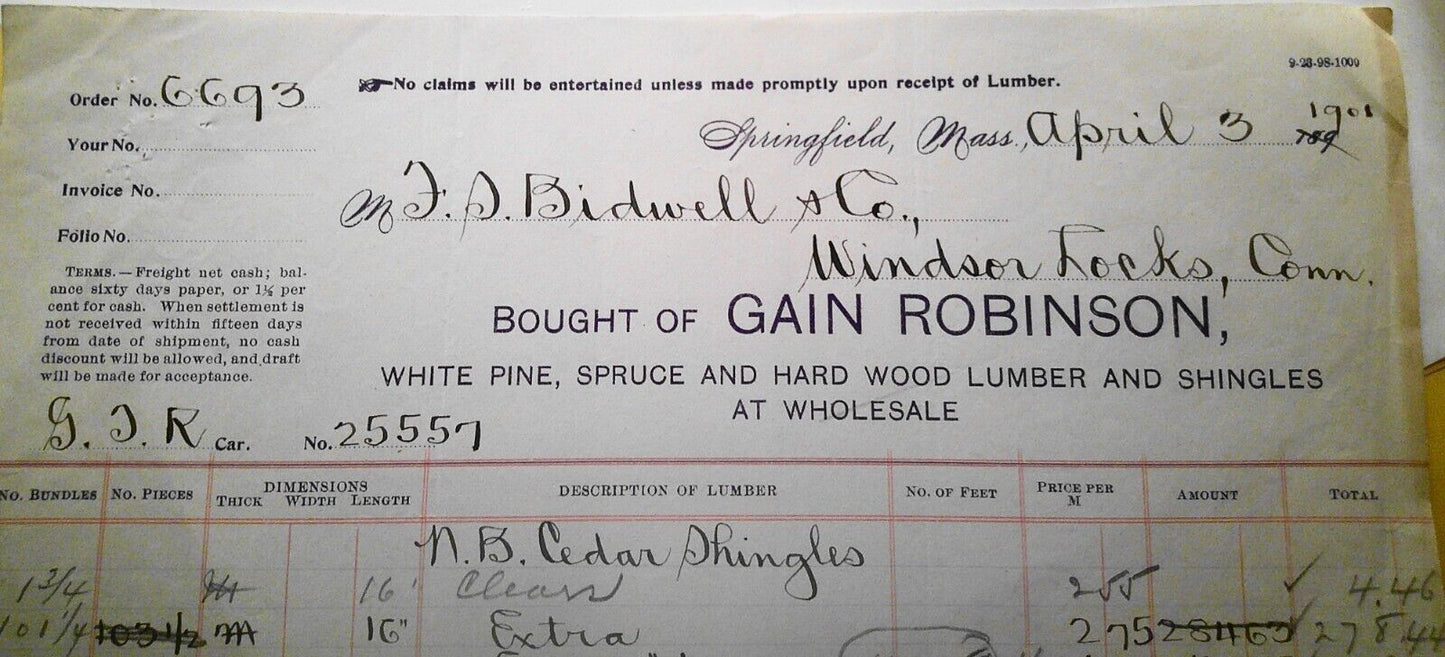 9-28-98-1000
Order No. 6693
☞No claims will be entertained unless made promptly upon receipt of Lumber.
Springfield, Mass., April 3 1901 189
Your No.
Invoice No.
M F. S. Bidwell & Co.,
Folio No.
Windsor Locks, Conn.
TERMS.—Freight net cash; bal-
ance sixty days paper, or 1½ per
cent for cash. When settlement is
not received within fifteen days
from date of shipment, no cash
discount will be allowed, and draft
will be made for acceptance.
BOUGHT OF GAIN ROBINSON,
WHITE PINE, SPRUCE AND HARD WOOD LUMBER AND SHINGLES
AT WHOLESALE
G. T. R Car. No. 25557
NO. BUNDLES NO. PIECES DIMENSIONS THICK WIDTH LENGTH DESCRIPTION OF LUMBER NO. OF FEET PRICE PER M AMOUNT TOTAL
N. B. Cedar Shingles
1 3/4 M 16" Clears 255 ✓ 4.46
101 1/4 103 1/2 M 16" Extra 275 28463 ✓ 278.44